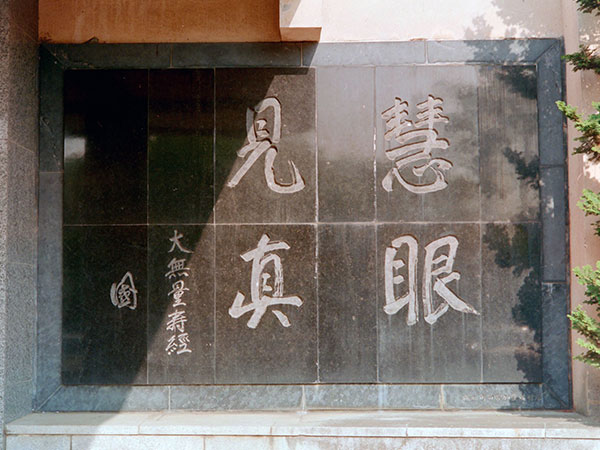 慧眼
見真
大無量寿經
圀